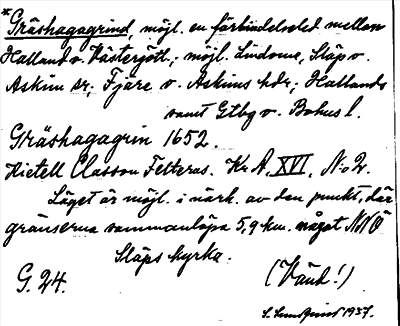 *Gräshagagrind, möjl. en förbindelseled mellan
Halland o. Västergötl.; möjl. Lindome, Släp o.
Askim sr; Fjäre o. Askims hdr; Hallands
samt Gtbg o. Bohus l.
Gräshagagrin 1652.
Kietell Classon Felterus. Kr A. XVI, No 2.
Läget är möjl. i närh. av den punkt, där
gränserna sammanlöpa 5,9 km. något NNÖ
Släps kyrka.
G. 24. (Vänd!)
S. Lundquist 1937.